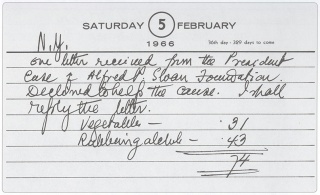 SATURDAY 5 FEBRUARY
1966
36th day - 329 days to come
N.Y.
one letter received from the President
Case of Alfred P. Sloan Foundation.
Declined to help the cause. I shall
reply the letter.
Vegetables — .31
Rubbing alcohol — .43
.74